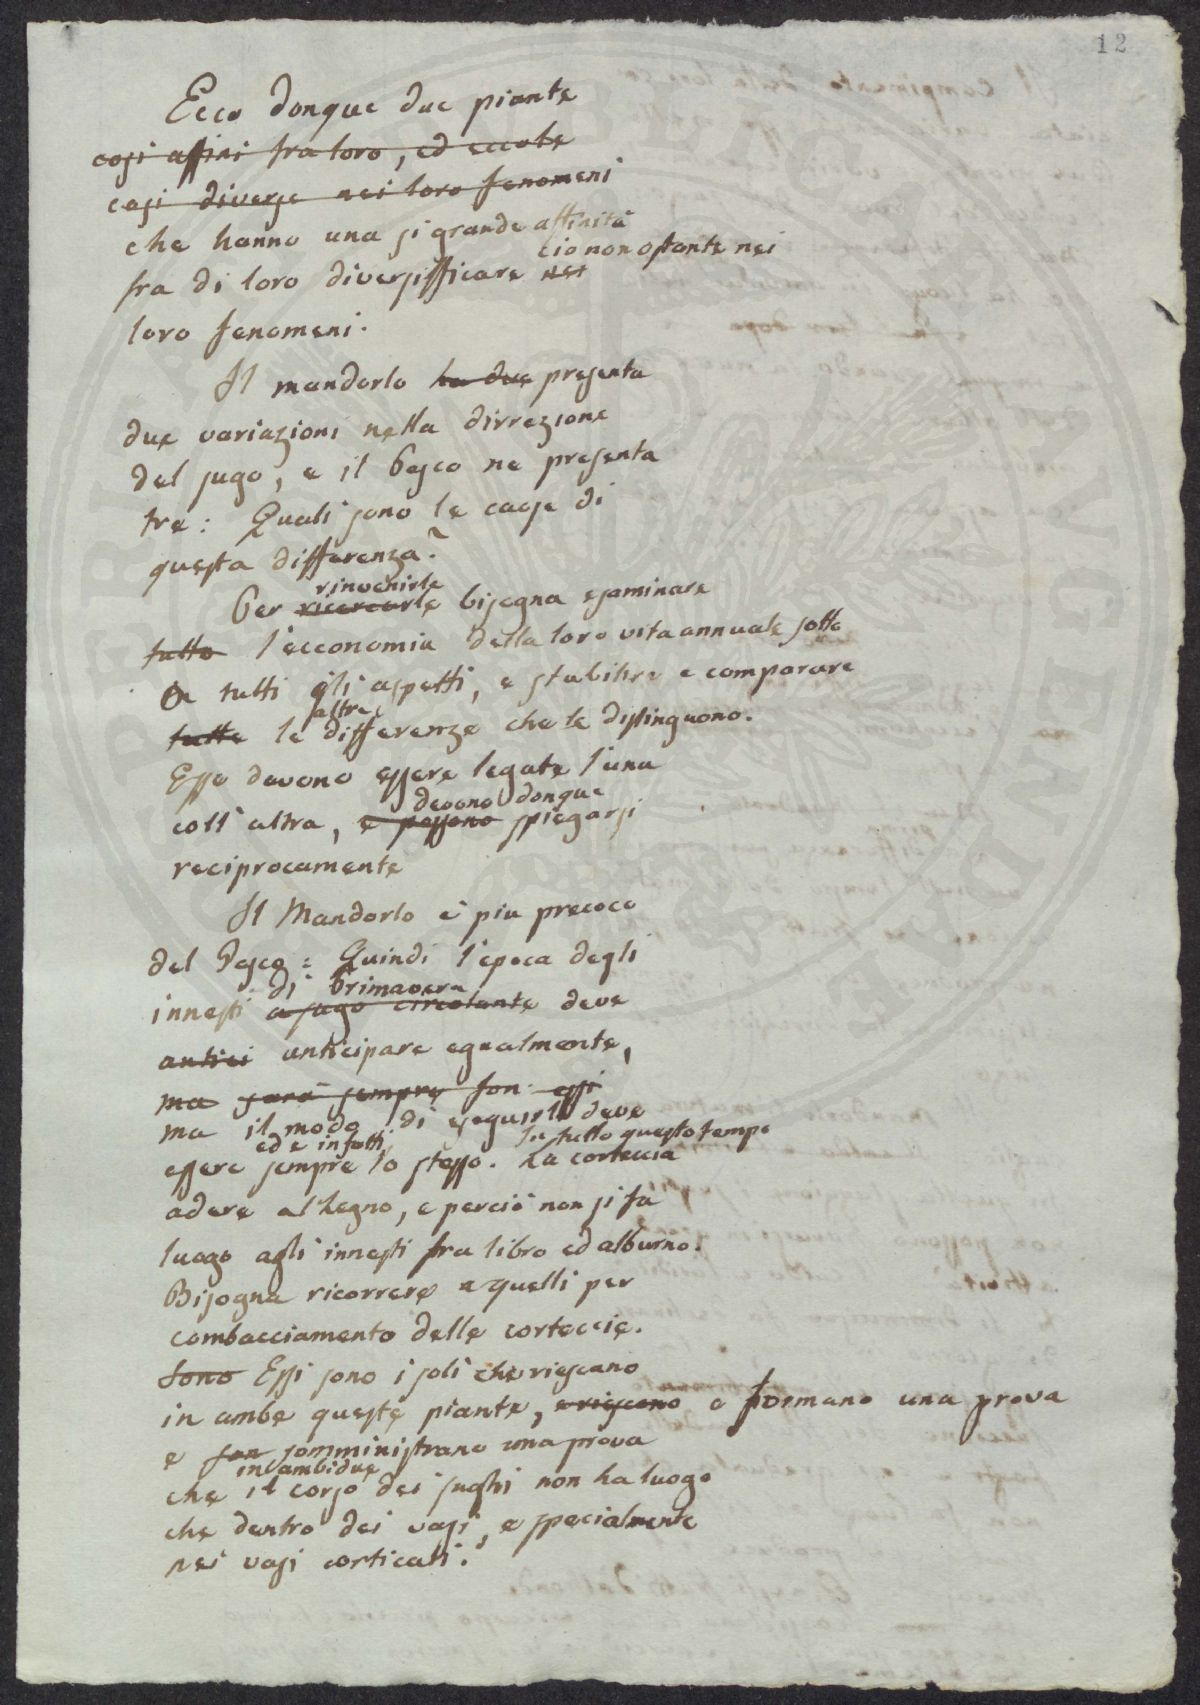 12
Ecco donque due piante
cosi affini fra loro, ed eccole
cosi diverse nei loro fenomeni
che hanno una si grande affinità
ciononostante nei
fra di loro diversifficare nei
loro fenomeni.
Il mandorlo ha due presenta
due variazioni nella dirrezione
del sugo, e il Pesco ne presenta
tre: Quali sono le caose di
questa differenza?
rinvenirle
Per ricercarle bisogna esaminare
tutto l'ecconomia della loro vita annuale sotto
a tutti gli aspetti, e stabilire e comparare
altre
tutte le differenze che le distinguono.
Esse devono essere legate l'una
devono donque
coll'altra, e possono spiegarsi
reciprocamente
Il Mandorlo è piu precoce
del Pesco: Quindi l'epoca degli
di Primavera
innesti a sugo circolante deve
antici anticipare egualmente,
ma sarà sempre fon essi
ma il modo di eseguirli deve
ed è infatti In tutto questo tempo
essere sempre lo stesso. La corteccia
adere al Legno, e perciò non si fa
luogo agli innesti fra libro ed alburno.
Bisogna ricorrere a quelli per
combacciamento delle corteccie.
Sono Essi sono i soli che riescano
in ambe queste piante, e riescono e formano una prova
e fon somministrano una prova
in ambidue
che il corso dei sughi non ha luogo
che dentro dei vasi, e specialmente
nei vasi corticali.